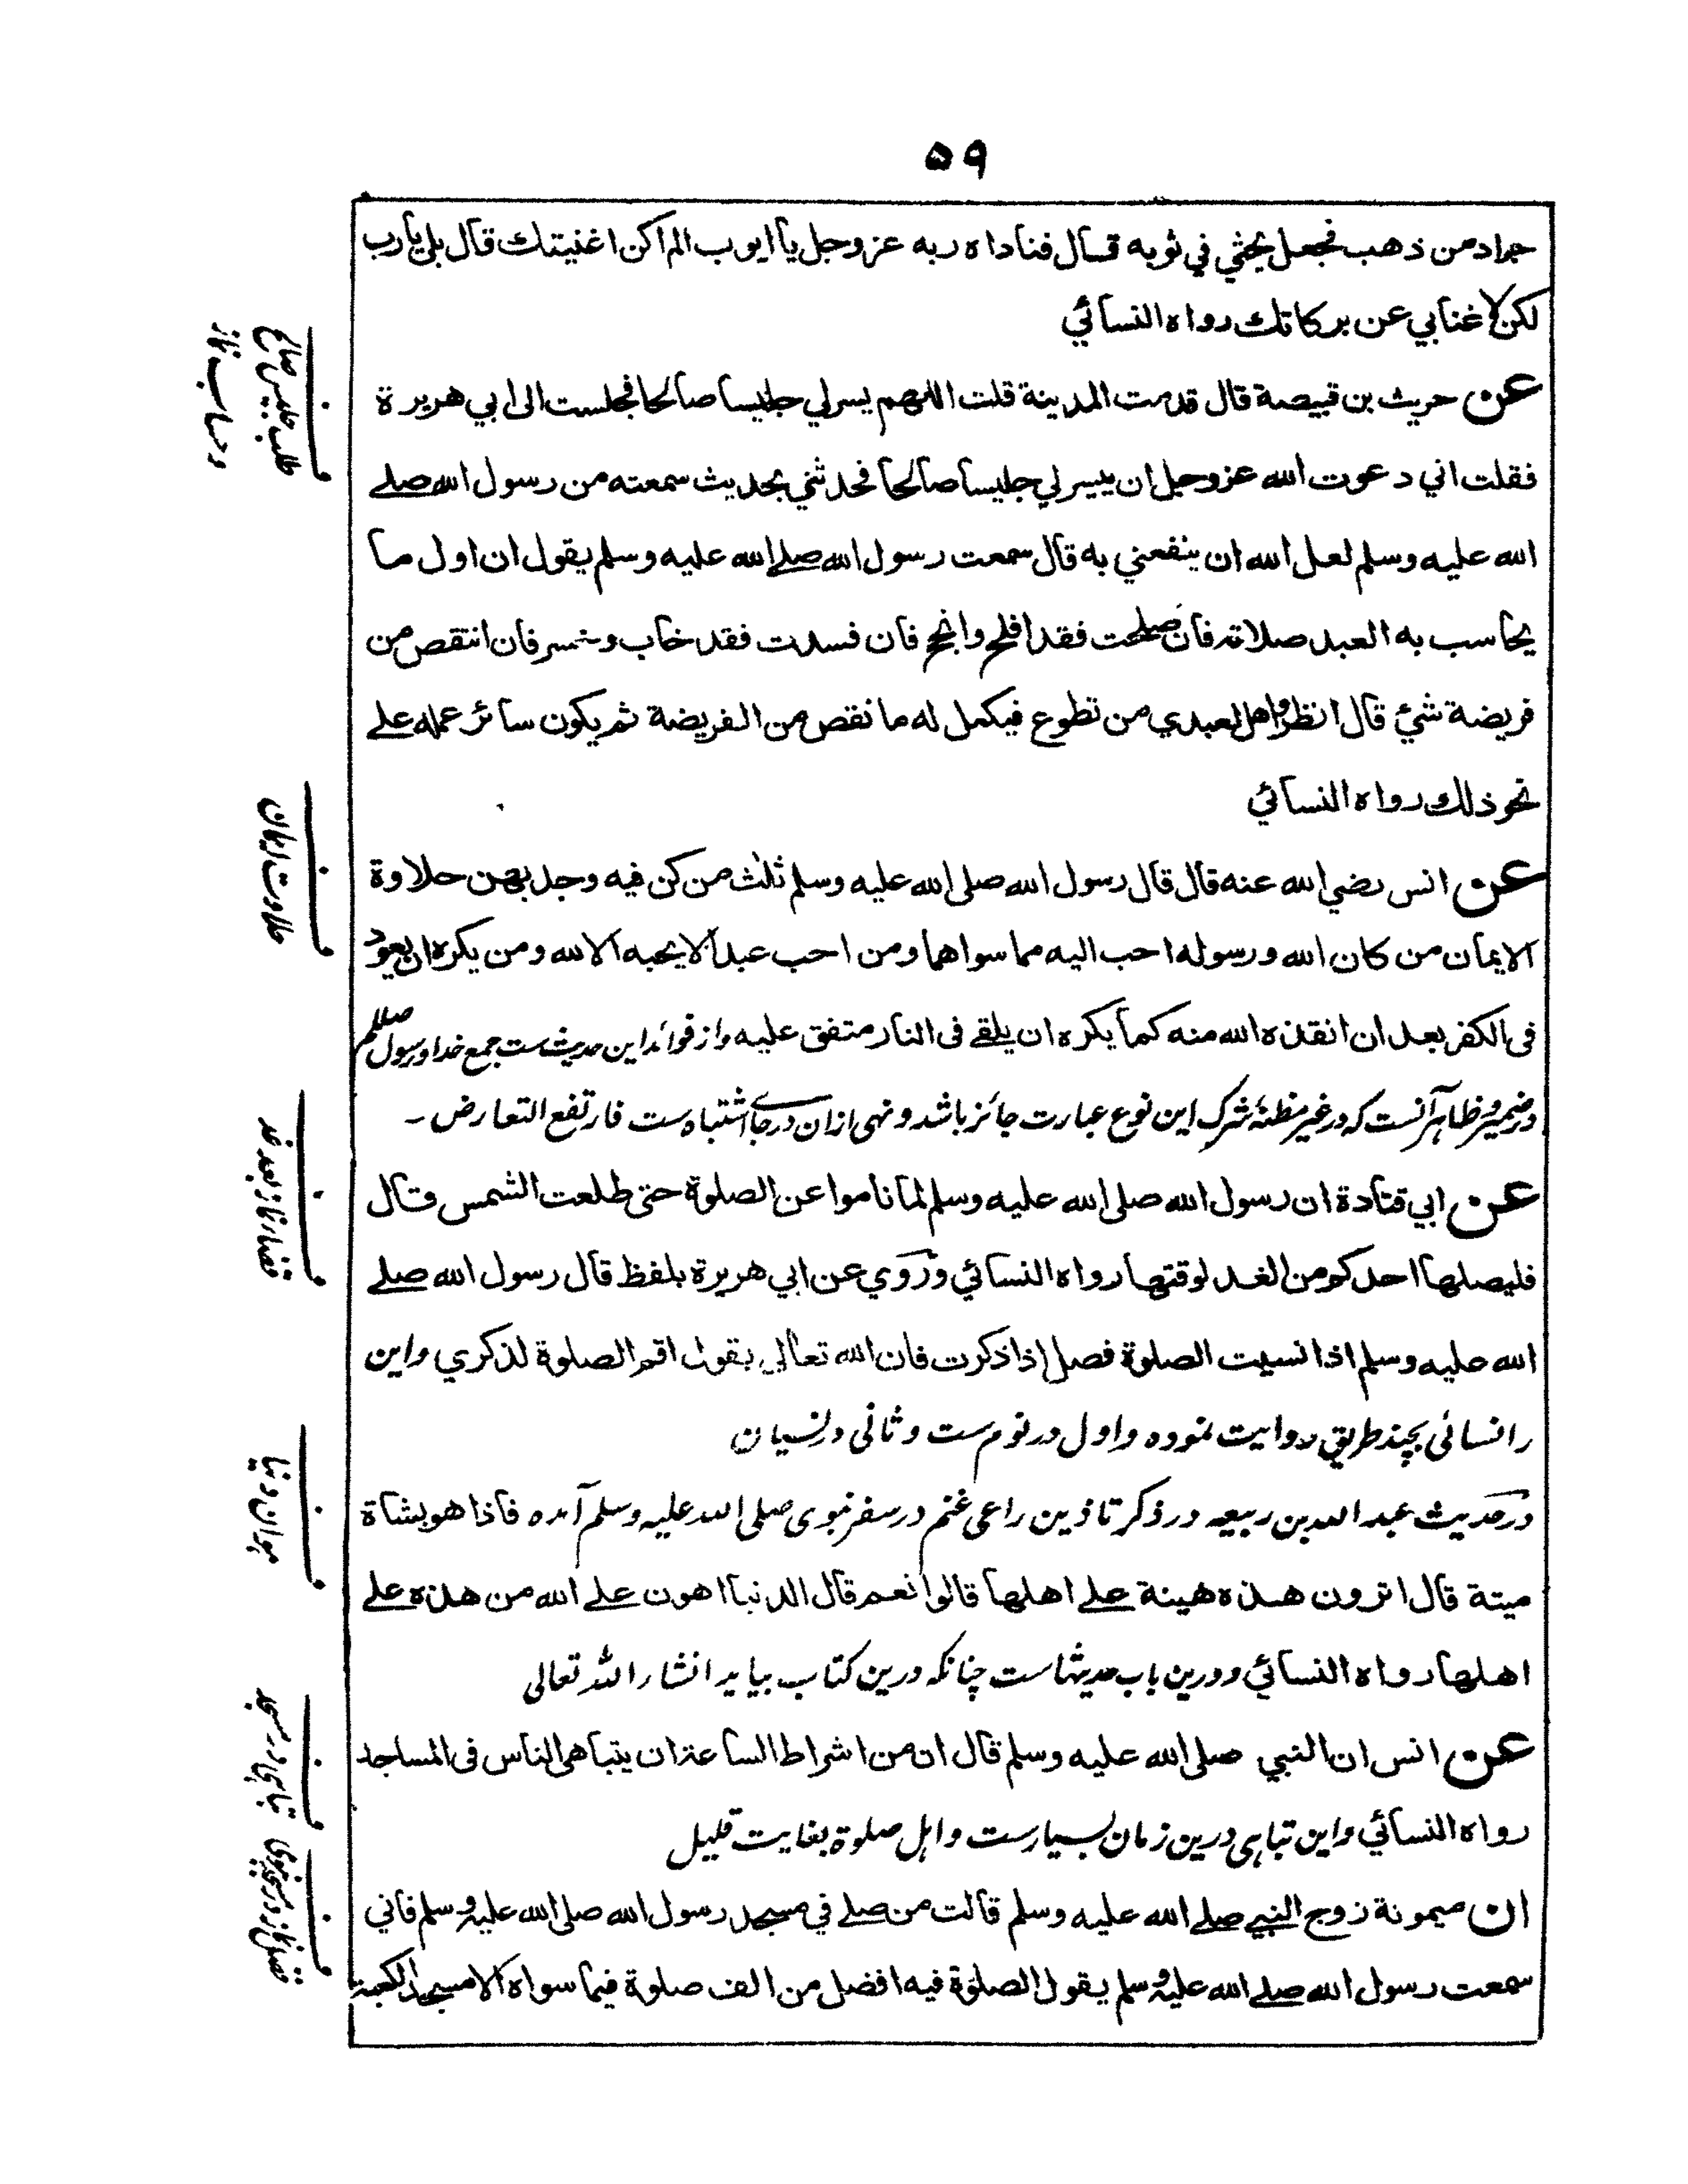 ۵۹
جراد من ذهب فجعل يحثي في ثوبه قال فناداه ربه عز وجل يا ايوب الم اكن اغنيتك قال بلى يارب
لكن لا غنابي عن بركاتك رواه النسائي
عن حريث بن قبيصة قال قدمت المدينة قلت اللهم يسر لي جليسا صالحا فجلست الى ابي هريرة
فقلت اني دعوت الله عز وجل ان ييسر لي جليسا صالحا فحدثني بحديث سمعته من رسول الله صلے
الله عليه وسلم لعل الله ان ينفعني به قال سمعت رسول الله صلے الله عليه وسلم يقول ان اول ما
يحاسب به العبد صلاته فان صلحت فقد افلح وانجح فان فسدت فقد خاب وخسر فان انتقص من
فريضة شئ قال انظروا هل لعبدي من تطوع فيكمل له ما نقص من الفريضة ثم يكون سائر عمله علے
نحو ذلك رواه النسائي
عن انس رضي الله عنه قال قال رسول الله صلى الله عليه وسلم ثلٰث من كن فيه وجد بهن حلاوة
الايمان من كان الله ورسوله احب اليه مما سواهما ومن احب عبدا لا يحبه الا لله ومن يكره ان يعود
فى الكفر بعد ان انقذه الله منه كما يكره ان يلقے فى النار متفق عليه واز فوائد این حدیث ست جمع خدا ورسول صللم
در ضمیر وظاهر آنست که در غیر مظنهٔ شرک این نوع عبارت جائز باشد ونهی ازان در جاے اشتباه ست فارتفع التعارض ۔
عن ابي قتادة ان رسول الله صلى الله عليه وسلم لما ناموا عن الصلوة حتى طلعت الشمس قال
فليصلها احدكم من الغد لوقتها رواه النسائي وروي عن ابي هريرة بلفظ قال رسول الله صلے
الله عليه وسلم اذا نسيت الصلوة فصل اذا ذكرت فان الله تعالى يقول اقم الصلوة لذكري واین
را نسائی بچند طریق روایت نموده واول در نوم ست وثانی در نسیان
در حدیث عبد الله بن ربیعه در ذکر تاذین راعی غنم در سفر نبوی صلی الله علیه وسلم آمده فاذا هو بشاة
ميتة قال اترون هذه هينة علے اهلها قالوا نعم قال الدنيا اهون علے الله من هذه علے
اهلها رواه النسائي ودرین باب حدیثهاست چنانکه درین کتاب بیاید انشاء الله تعالی
عن انس ان النبي صلى الله عليه وسلم قال ان من اشراط الساعة ان يتباهى الناس فى المساجد
رواه النسائي واین تباہی درین زمان بسیارست واہل صلوة بغایت قلیل
ان ميمونة زوج النبي صلے الله عليه وسلم قالت من صلے في مسجد رسول الله صلى الله عليه وسلم فاني
سمعت رسول الله صلے الله عليه وسلم يقول الصلوة فيه افضل من الف صلوة فيما سواه الا مسجد الكعبة
ف
طلب جلیس صالح
وحساب نماز
ف
حلاوت ایمان
ف
قضاء نماز بعد غد
ف
ہوان دنیا
ف
تباہی در مسجد
ف
فضل نماز در مسجد نبوی